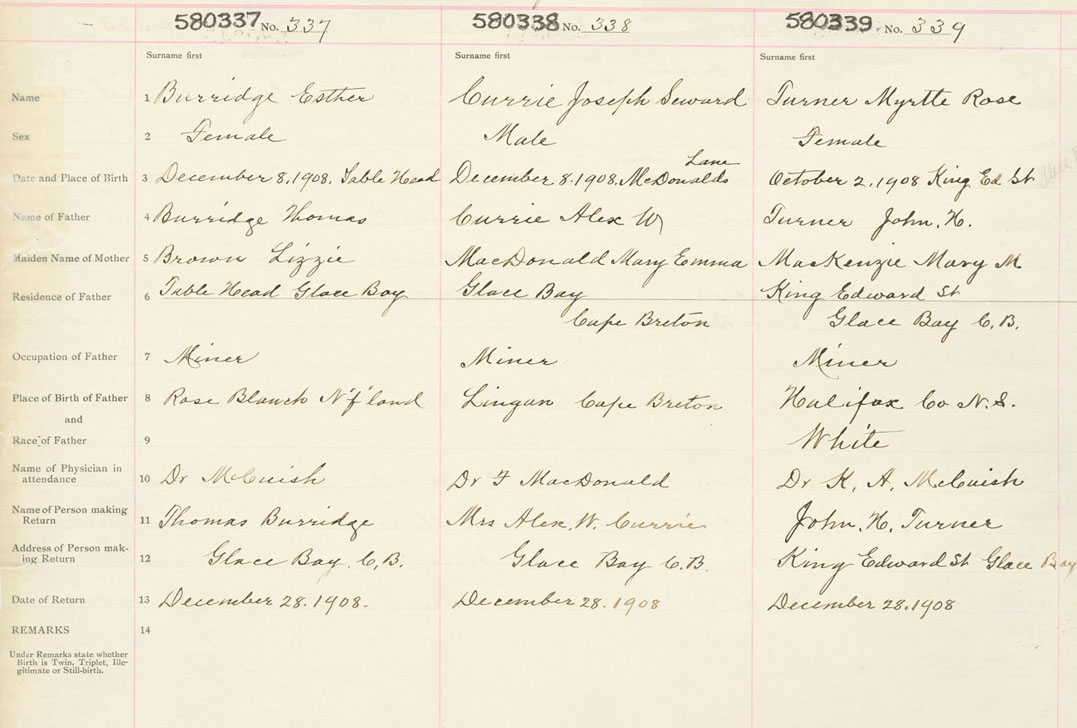 580337 No. 337 580338 No. 338 580339 No. 339
Surname first Surname first Surname first
Name 1 Burridge Esther Currie Joseph Seward Turner Myrtle Rose
Sex 2 Female Male Female
Lane
Date and Place of Birth 3 December 8, 1908, Table Head December 8. 1908, McDonalds October 2, 1908 King Ed St
Name of Father 4 Burridge Thomas Currie Alex W Turner John. H.
Maiden Name of Mother 5 Brown Lizzie MacDonald Mary Emma MacKenzie Mary M
Residence of Father 6 Table Head Glace Bay Glace Bay King Edward St
Cape Breton Glace Bay C. B.
Occupation of Father 7 Miner Miner Miner
Place of Birth of Father 8 Rose Blanch N'f'land Lingan Cape Breton Halifax Co N. S.
and
Race of Father 9 White
Name of Physician in
attendance 10 Dr McCuish Dr F MacDonald Dr K. A. McCuish
Name of Person making
Return 11 Thomas Burridge Mrs Alex. W. Currie John. H. Turner
Address of Person mak-
ing Return 12 Glace Bay. C. B. Glace Bay C. B. King Edward St Glace Bay
Date of Return 13 December 28. 1908. December 28. 1908 December 28, 1908
REMARKS 14
Under Remarks state whether
Birth is Twin, Triplet, Ille-
gitimate or Still-birth.